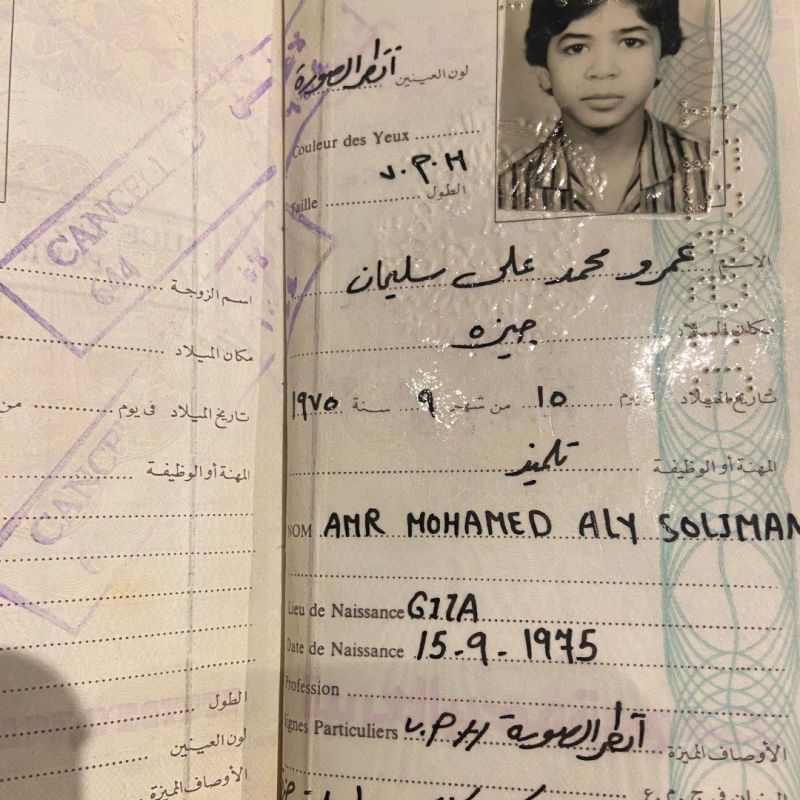 CANCELLED
644
اسم الزوجة
مكان الميلاد
تاريخ الميلاد في يوم من
المهنة أو الوظيفة
CANCE
الطول
لون العينين
الأوصاف المميزة
لون العينين أنظر الصورة
Couleur des Yeux
V.P.H
Taille الطول
الاسم عمرو محمد على سليمان
مكان الميلاد جيزه
تاريخ الميلاد في يوم ١٥ من شهر ٩ سنة ١٩٧٥
المهنة أو الوظيفة تلميذ
NOM AMR MOHAMED ALY SOLIMAN
Lieu de Naissance GIZA
Date de Naissance 15-9-1975
Profession
Signes Particuliers V.P.H أنظر الصورة الأوصاف المميزة